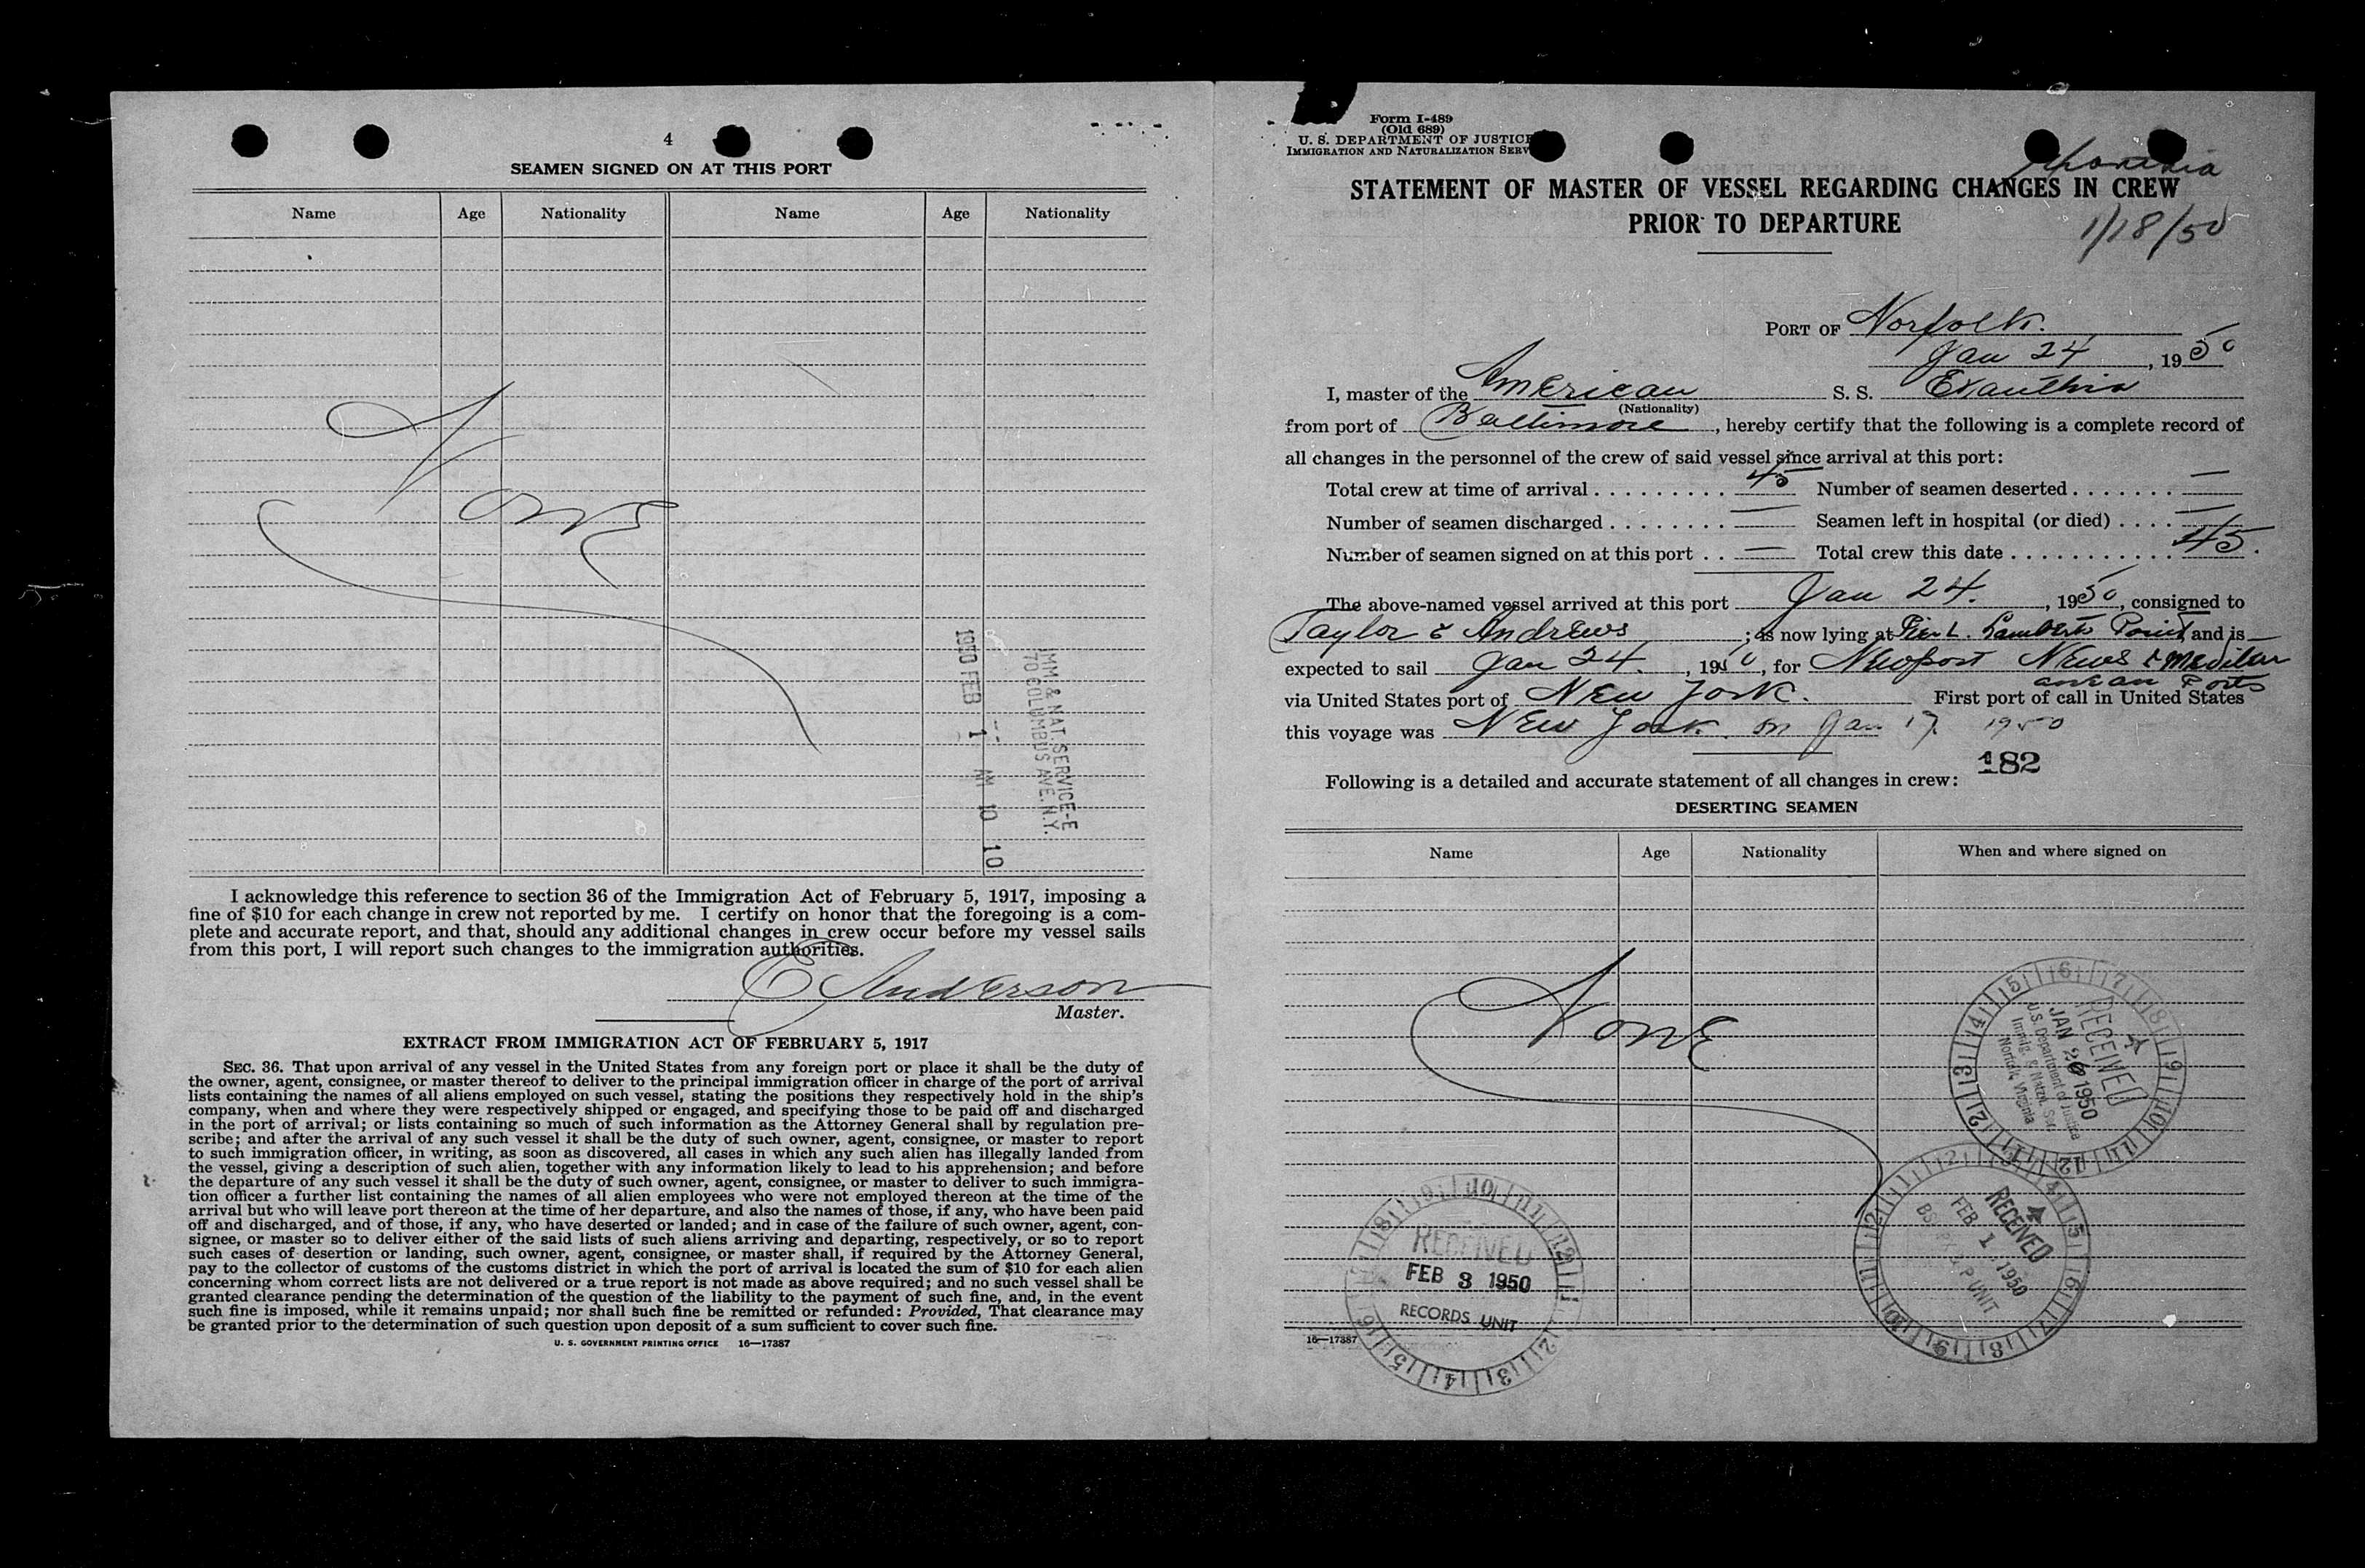 4
SEAMEN SIGNED ON AT THIS PORT
Name Age Nationality Name Age Nationality
None
IMM. & NAT. SERVICE-E
70 COLUMBUS AVE. N.Y.
1950 FEB 1 AM 10 10
I acknowledge this reference to section 36 of the Immigration Act of February 5, 1917, imposing a
fine of $10 for each change in crew not reported by me. I certify on honor that the foregoing is a com-
plete and accurate report, and that, should any additional changes in crew occur before my vessel sails
from this port, I will report such changes to the immigration authorities.
E Anderson
Master.
EXTRACT FROM IMMIGRATION ACT OF FEBRUARY 5, 1917
SEC. 36. That upon arrival of any vessel in the United States from any foreign port or place it shall be the duty of
the owner, agent, consignee, or master thereof to deliver to the principal immigration officer in charge of the port of arrival
lists containing the names of all aliens employed on such vessel, stating the positions they respectively hold in the ship's
company, when and where they were respectively shipped or engaged, and specifying those to be paid off and discharged
in the port of arrival; or lists containing so much of such information as the Attorney General shall by regulation pre-
scribe; and after the arrival of any such vessel it shall be the duty of such owner, agent, consignee, or master to report
to such immigration officer, in writing, as soon as discovered, all cases in which any such alien has illegally landed from
the vessel, giving a description of such alien, together with any information likely to lead to his apprehension; and before
the departure of any such vessel it shall be the duty of such owner, agent, consignee, or master to deliver to such immigra-
tion officer a further list containing the names of all alien employees who were not employed thereon at the time of the
arrival but who will leave port thereon at the time of her departure, and also the names of those, if any, who have been paid
off and discharged, and of those, if any, who have deserted or landed; and in case of the failure of such owner, agent, con-
signee, or master so to deliver either of the said lists of such aliens arriving and departing, respectively, or so to report
such cases of desertion or landing, such owner, agent, consignee, or master shall, if required by the Attorney General,
pay to the collector of customs of the customs district in which the port of arrival is located the sum of $10 for each alien
concerning whom correct lists are not delivered or a true report is not made as above required; and no such vessel shall be
granted clearance pending the determination of the question of the liability to the payment of such fine, and, in the event
such fine is imposed, while it remains unpaid; nor shall such fine be remitted or refunded: Provided, That clearance may
be granted prior to the determination of such question upon deposit of a sum sufficient to cover such fine.
U. S. GOVERNMENT PRINTING OFFICE 16—17387
Form I-489
(Old 689)
U. S. DEPARTMENT OF JUSTICE
IMMIGRATION AND NATURALIZATION SERV
STATEMENT OF MASTER OF VESSEL REGARDING CHANGES IN CREW
PRIOR TO DEPARTURE
1/18/50
PORT OF Norfolk.
Jan 24, 1950
I, master of the American S. S. Exanthia
(Nationality)
from port of Baltimore, hereby certify that the following is a complete record of
all changes in the personnel of the crew of said vessel since arrival at this port:
Total crew at time of arrival 45 Number of seamen deserted —
Number of seamen discharged — Seamen left in hospital (or died) —
Number of seamen signed on at this port — Total crew this date 45.
The above-named vessel arrived at this port Jan 24., 1950, consigned to
Taylor & Andrews; is now lying at Pier L. Lamberts Point and is
expected to sail Jan 24., 1950, for Newport News & Mediter
anean Ports
via United States port of New York. First port of call in United States
this voyage was New York. on Jan 17 1950
182
Following is a detailed and accurate statement of all changes in crew:
DESERTING SEAMEN
Name Age Nationality When and where signed on
None
RECEIVED
JAN 26 1950
U.S. Department of Justice
Immig. & Natzn. Ser.
Norfolk, Virginia
RECEIVED
FEB 1 1950
UNIT
RECEIVED
FEB 3 1950
RECORDS UNIT
16—17387